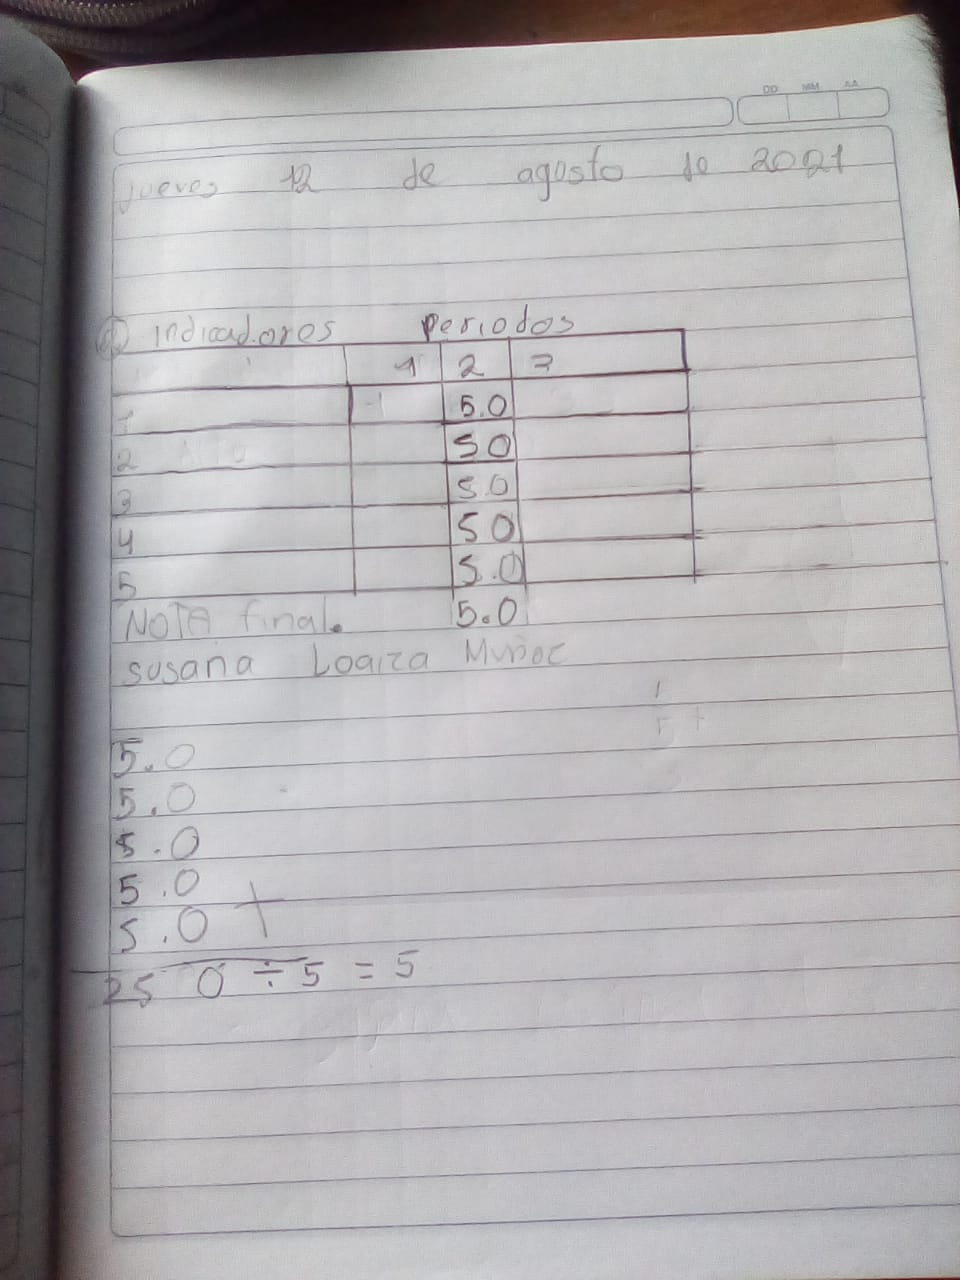 DD MM AA
jueves 12 de agosto de 2021
Indicadores Periodos
1 2 3
1 5.0
2 50
3 5.0
4 50
5 5.0
NOTA final. 5.0
susana Loaiza Muñoz
5.0
5.0
5.0
5.0
5.0 +
25 0 ÷ 5 = 5